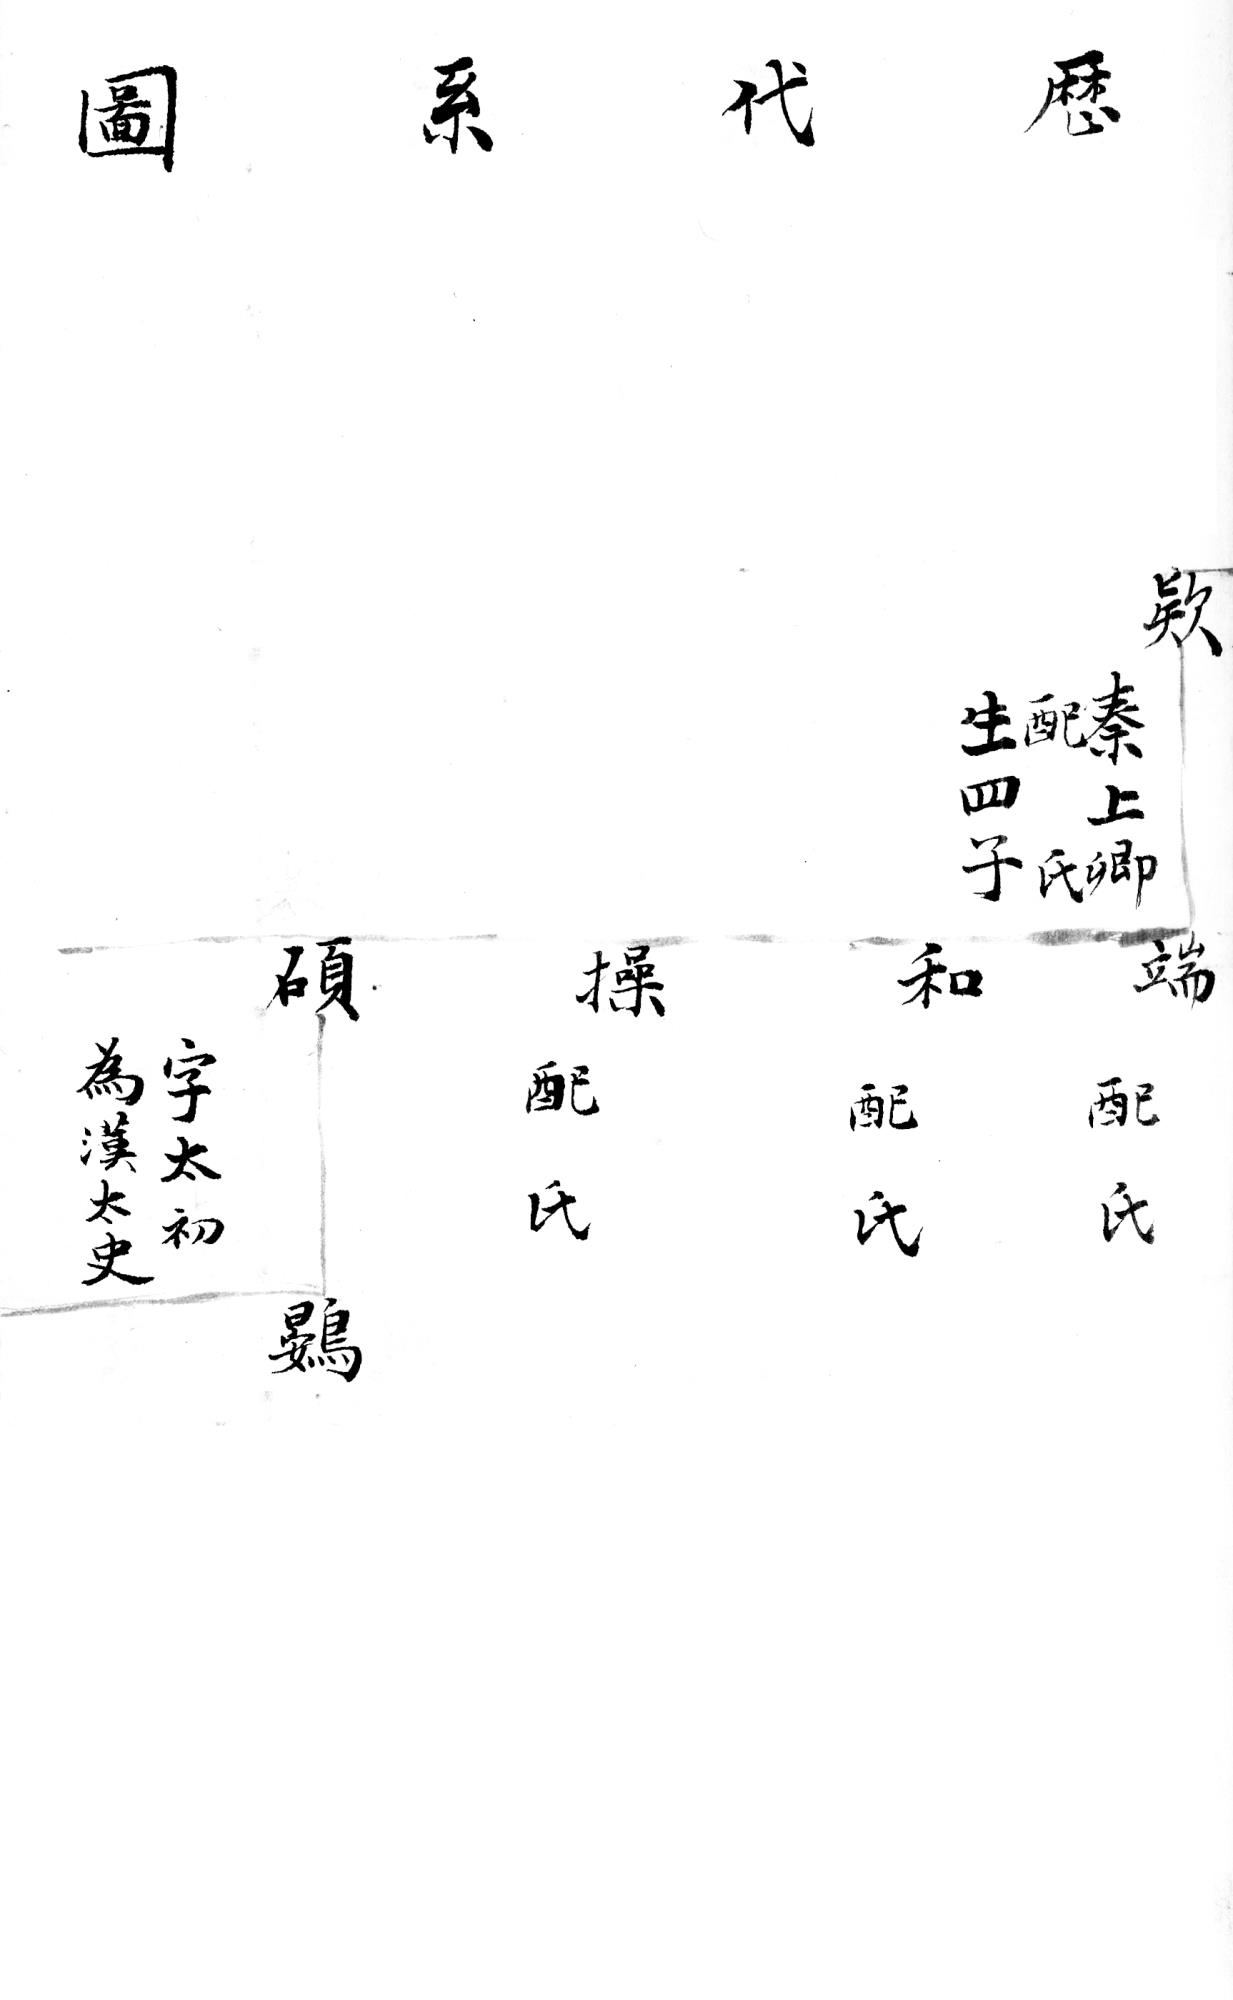 歷代系圖
欵
秦上卿
配氏
生四子
端
配氏
和
配氏
操
配氏
碩
字太初
為漢太史
鷃